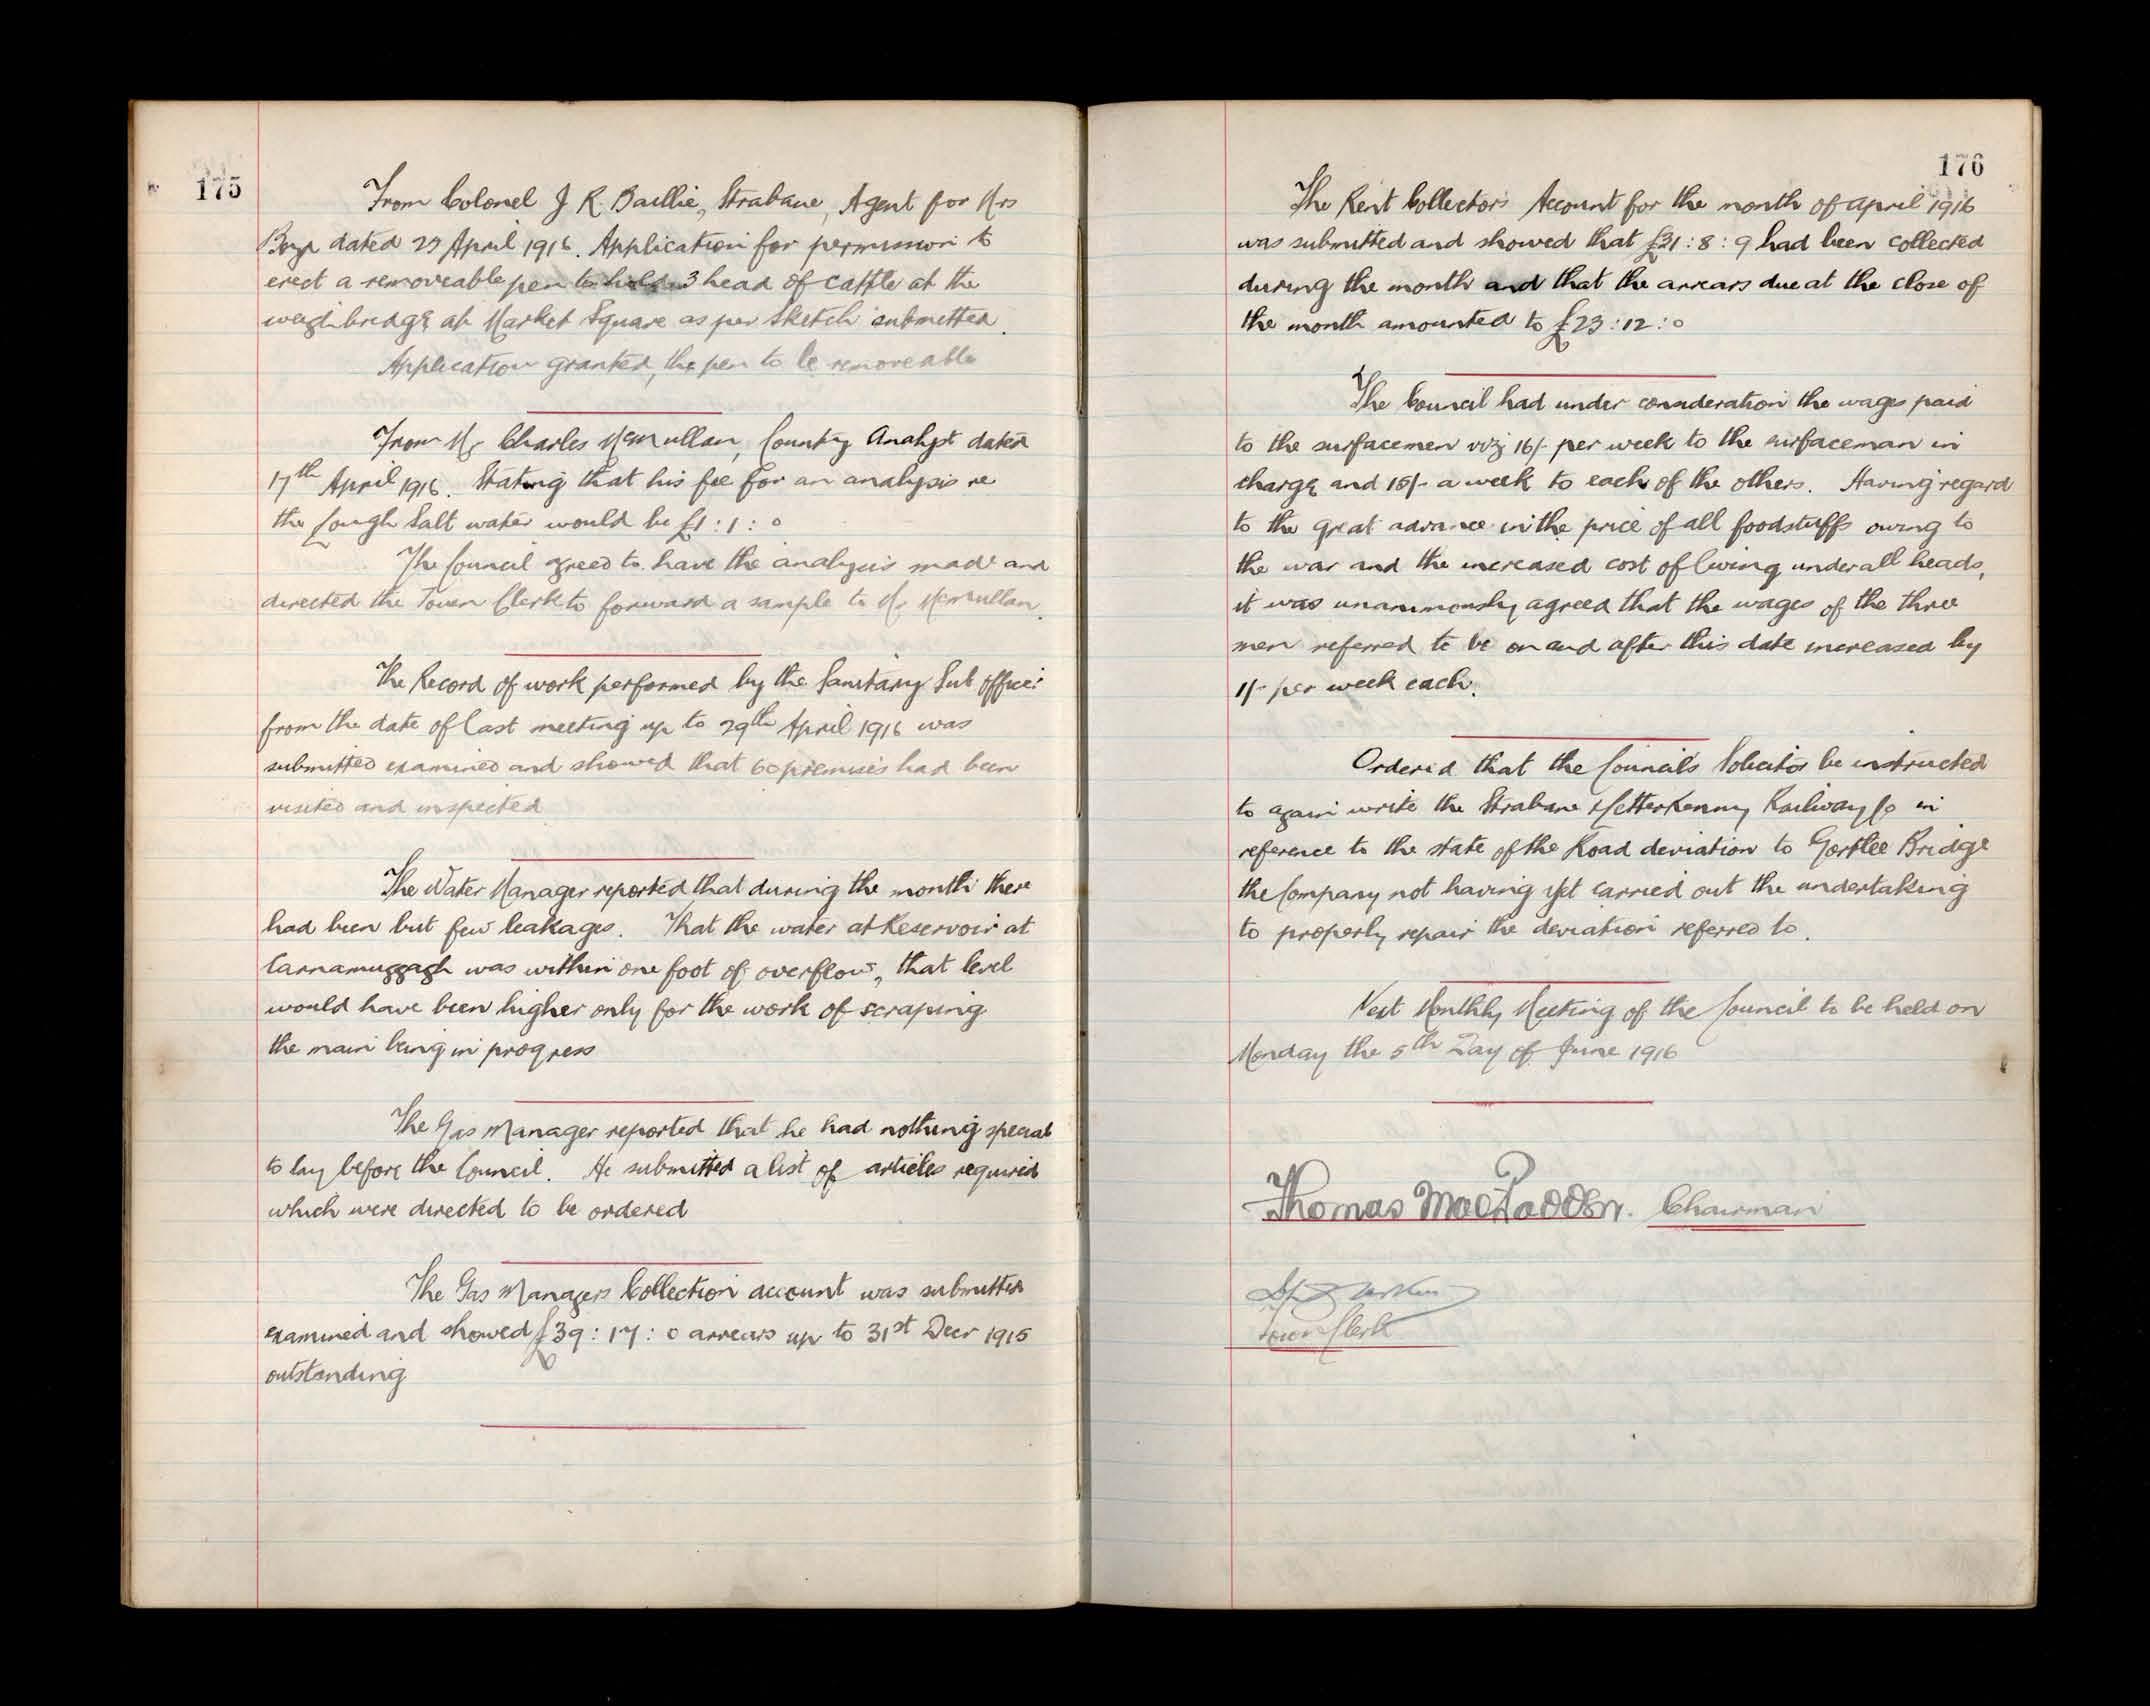 175
From Colonel J R Baillie, Strabane, Agent for Mrs
dated 29 April 1916. Application for permission to
erect a removeable pen to hold 3 head of cattle at the
weighbridge at Market Square as per sketch submitted.
Application granted, the pen to be removeable
From Mr Charles McMullan, County Analyst dated
17th April 1916. Stating that his fee for an analysis re
the Lough Salt water would be £1 : 1 : 0
The Council agreed to have the analysis made and
directed the Town Clerk to forward a sample to Mr McMullan.
The Record of work performed by the Sanitary Sub officer
from the date of last meeting up to 29th April 1916 was
submitted examined and showed that 60 premises had been
visited and inspected
The Water Manager reported that during the month there
had been but few leakages. That the water at Reservoir at
Carnamuggagh was within one foot of overflow, that level
would have been higher only for the work of scraping
the main being in progress
The Gas Manager reported that he had nothing special
to lay before the Council. He submitted a list of articles required
which were directed to be ordered
The Gas Managers Collection account was submitted
examined and showed £39 : 17 : 0 arrears up to 31st Decr 1915
outstanding
176
The Rent Collectors Account for the month of April 1916
was submitted and showed that £31 : 8 : 9 had been collected
during the month and that the arrears due at the close of
the month amounted to £23 : 12 : 0
The Council had under consideration the wages paid
to the surfacemen viz 16/- per week to the surfaceman in
charge and 15/- a week to each of the others. Having regard
to the great advance in the price of all foodstuffs owing to
the war and the increased cost of living under all heads,
it was unanimously agreed that the wages of the three
men referred to be on and after this date increased by
1/- per week each.
Ordered that the Council's Solicitor be instructed
to again write the Strabane & Letterkenny Railway Co in
reference to the state of the Road deviation to Gortlee Bridge
the Company not having yet carried out the undertaking
to properly repair the deviation referred to.
Next Monthly Meeting of the Council to be held on
Monday the 5th Day of June 1916
Thomas MacFadden. Chairman
Town Clerk